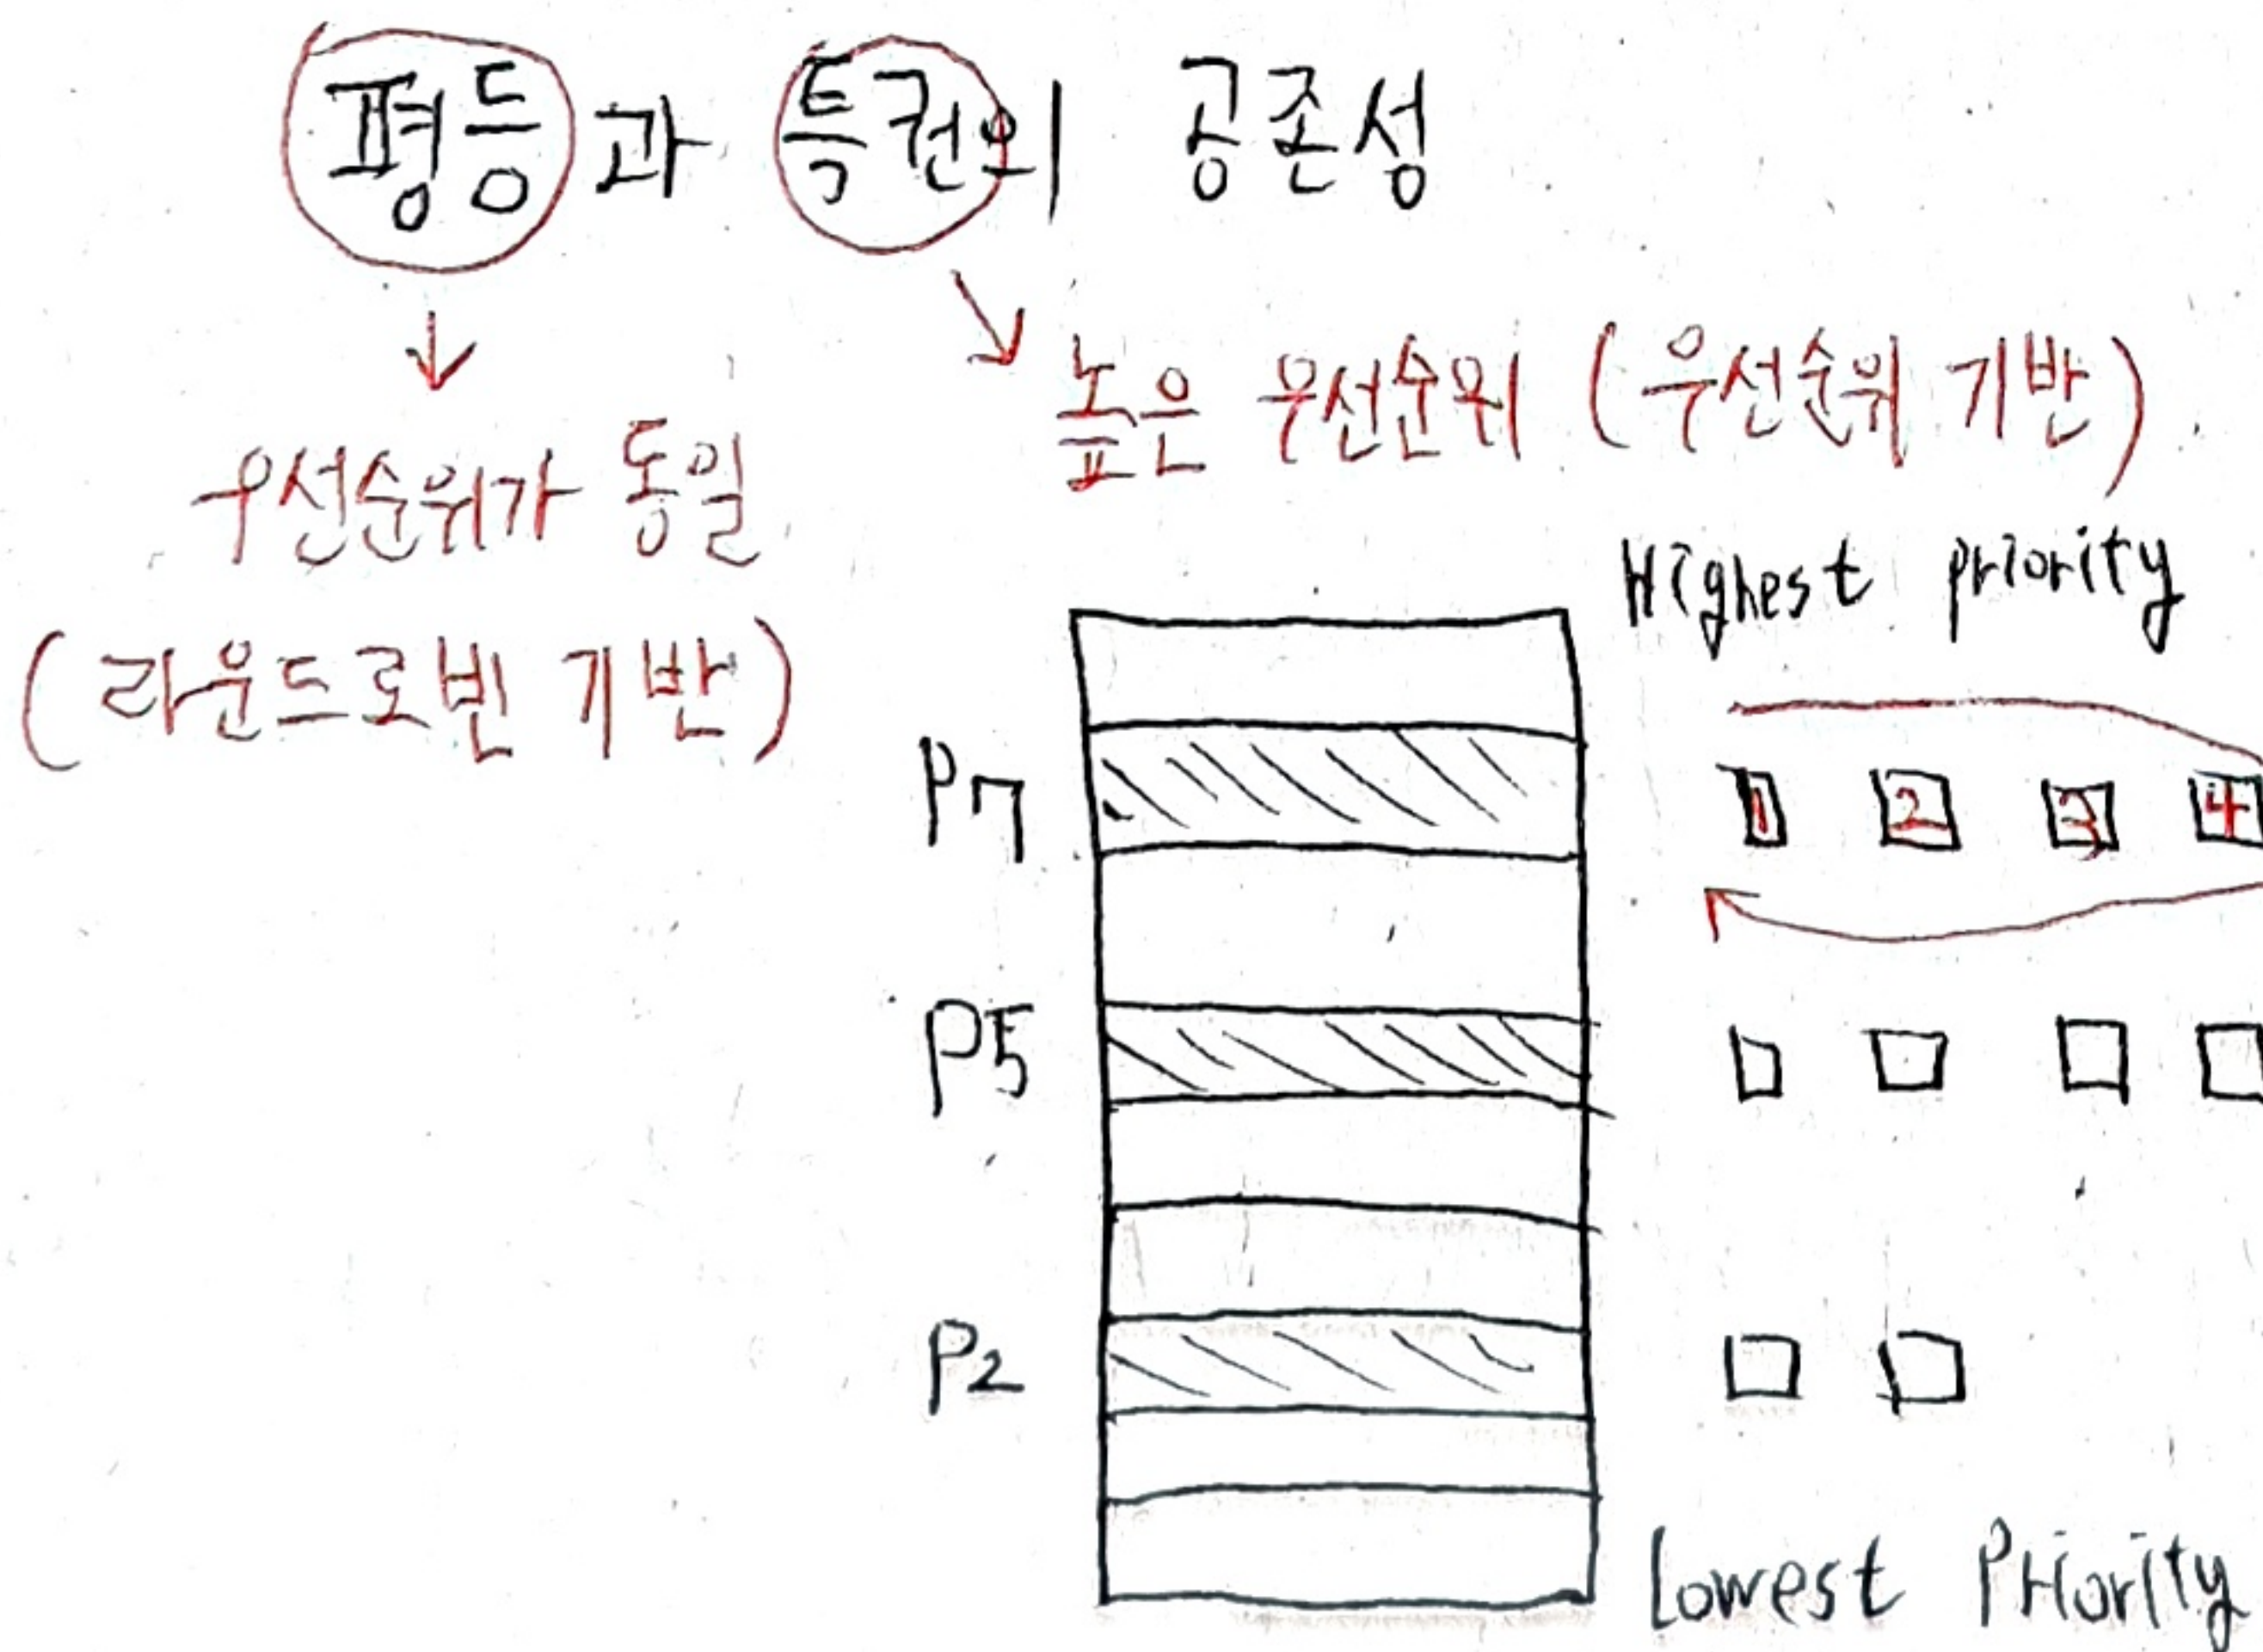 평등과 특권의 공존성
높은 우선순위 (우선순위 기반)
우선순위가 동일
(라운드로빈 기반)
Highest priority
P7
1 2 3 4
P5
P2
lowest Priority